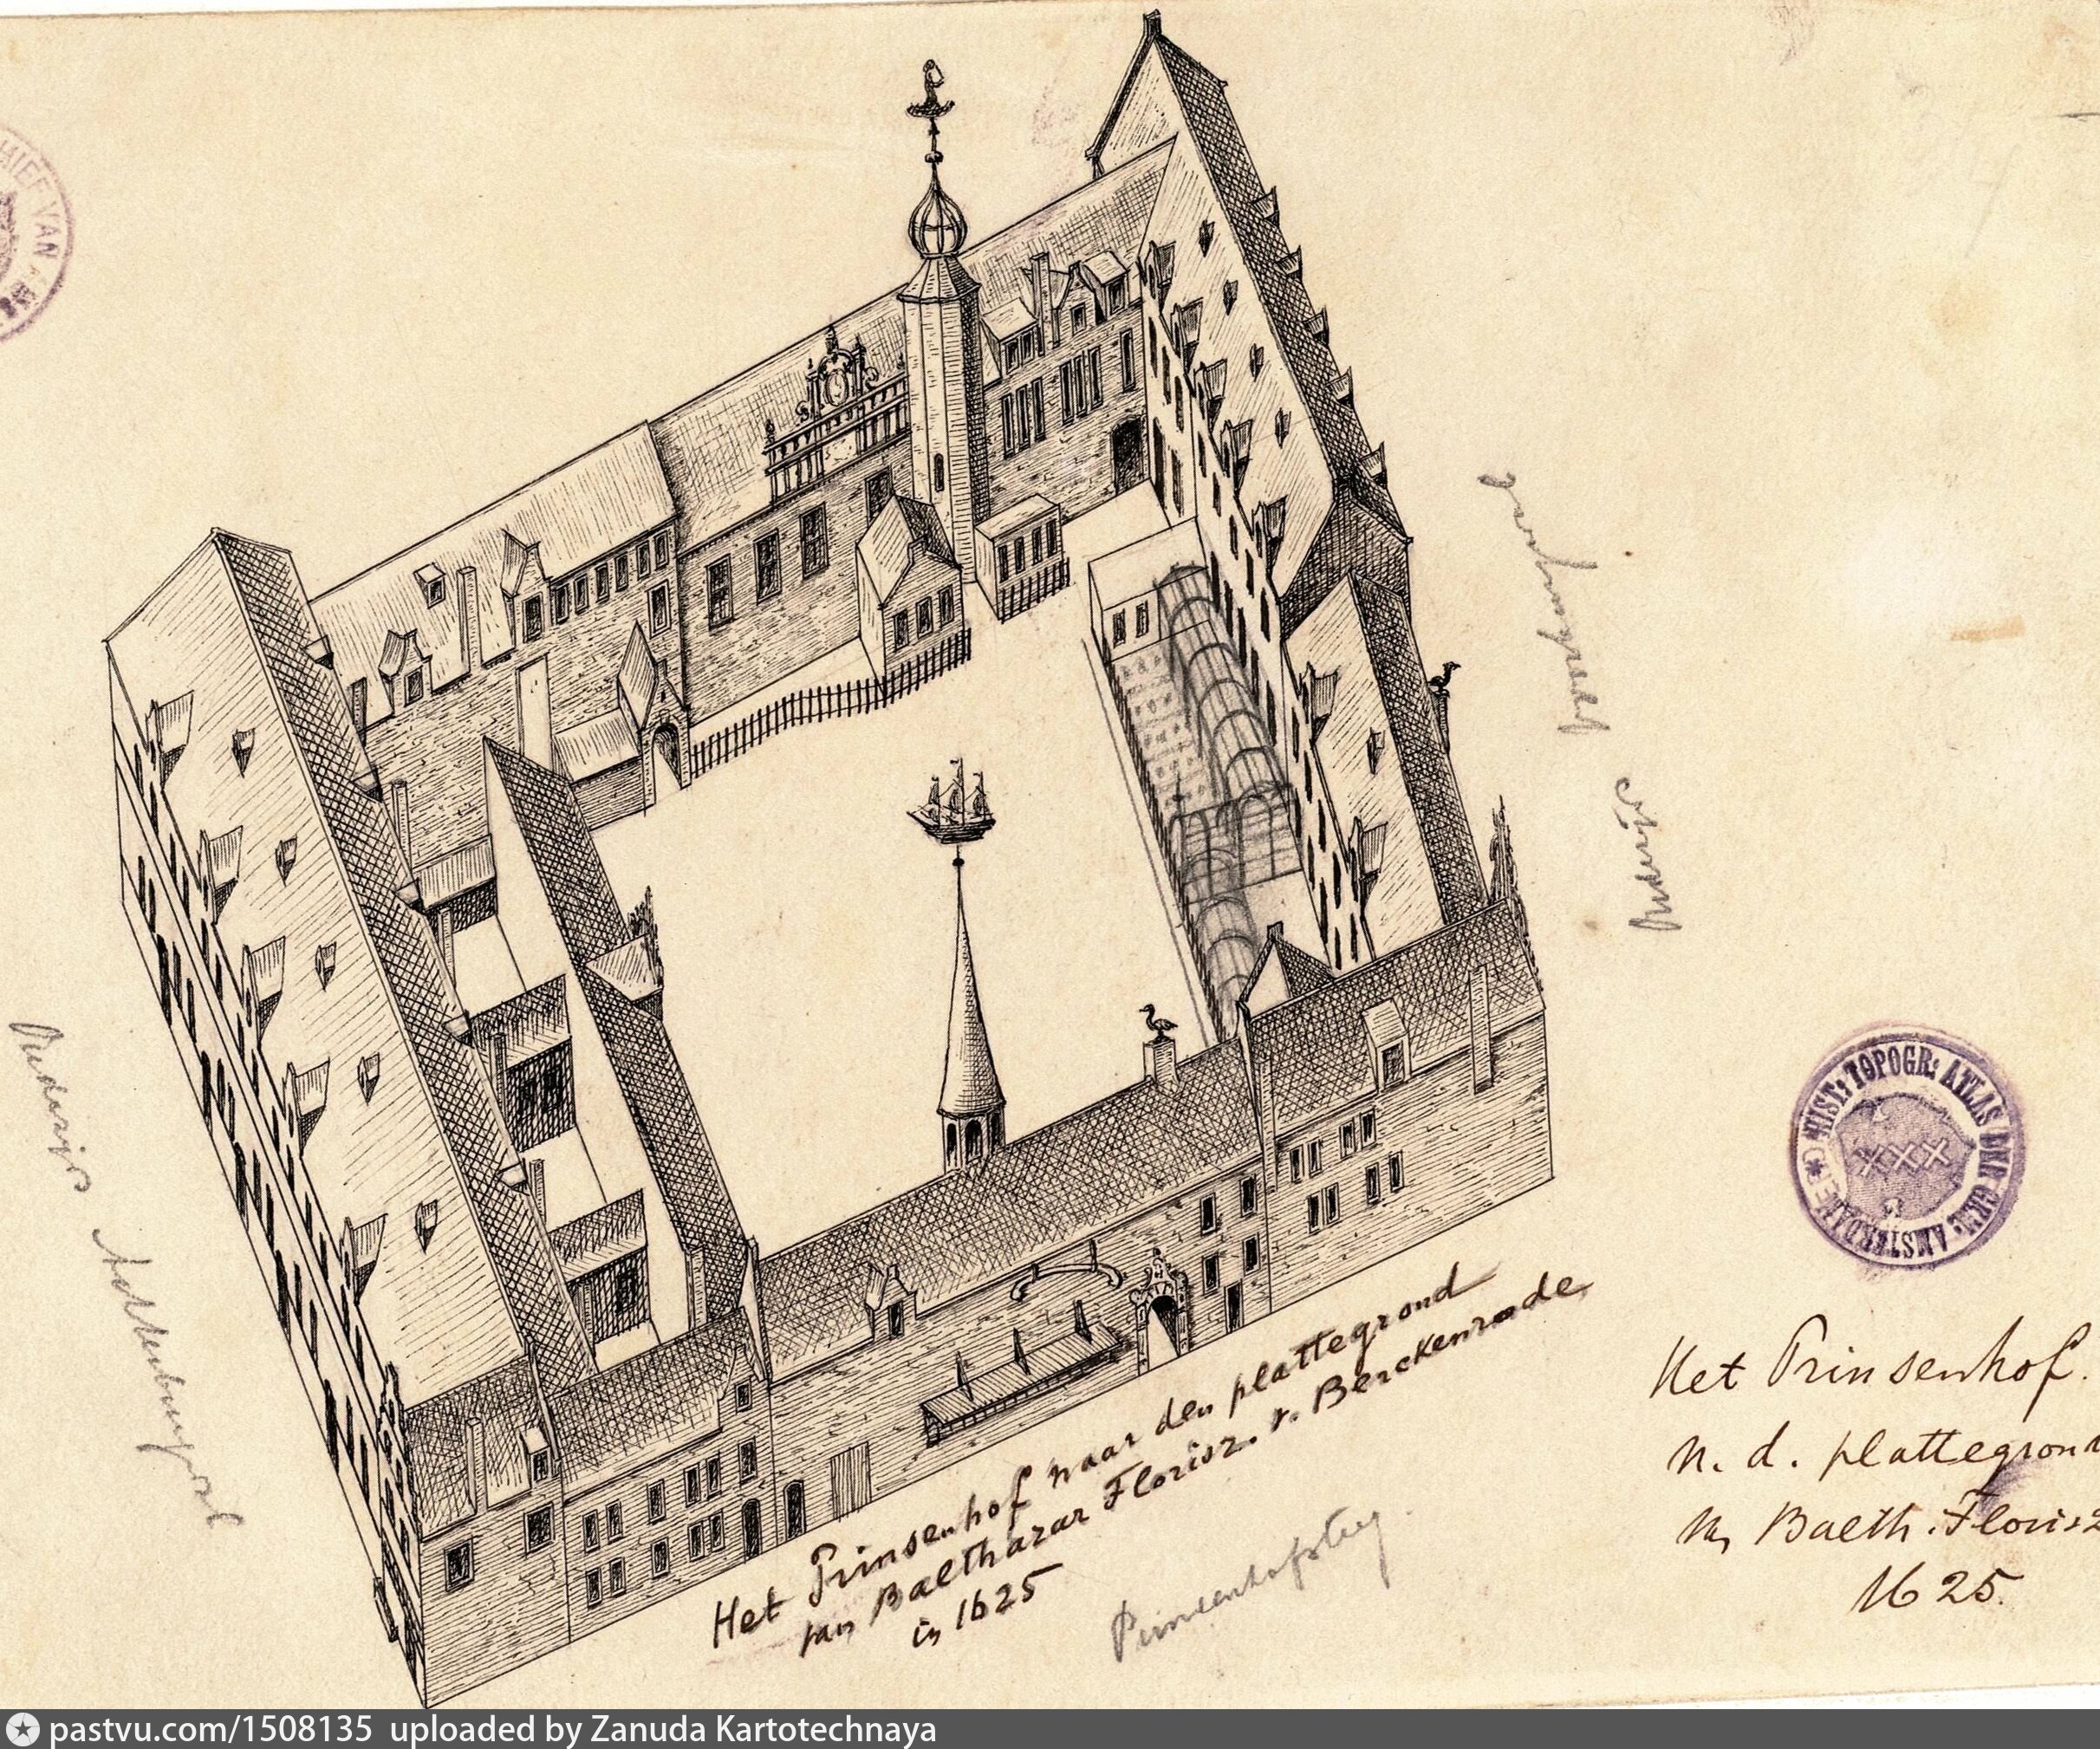 HIEF VAN
Oudezijds
voorburgwal
Oudezijds Achterburgwal
HIST: TOPOGR: ATLAS DER GEM: AMSTERDAM
XXX
Het Prinsenhof naar den plattegrond
van Balthazar Florisz. v. Berckenrode
in 1625
Prinsenhofsteeg.
Het Prinsenhof.
n. d. plattegron
v. Balth. Florisz
1625.
pastvu.com/1508135 uploaded by Zanuda Kartotechnaya